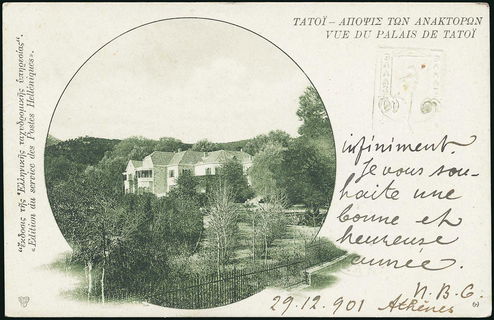 ΤΑΤΟΪ – ΑΠΟΨΙΣ ΤΩΝ ΑΝΑΚΤΟΡΩΝ
VUE DU PALAIS DE TATOÏ
"Ἔκδοσις τῆς Ἑλληνικῆς ταχυδρομικῆς ὑπηρεσίας".
«Edition du service des Postes Helléniques».
infiniment.
Je vous sou-
haite une
bonne et
heureuse
année.
N.B.G.
29.12.901 Athènes